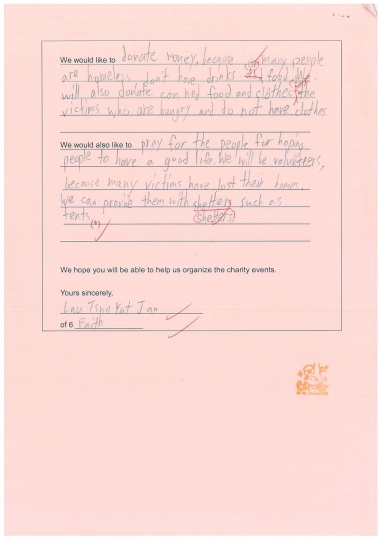 We would like to donate money, because many people
are homeless don't have drinks food. We
will also donate can ned food and clothes the
victims who are hungry and do not have clothes
We would also like to pray for the people for hoping
people to have a good life. We will be volunteers,
because many victims have lost their homes.
We can provide them with shelters such as
tents (shelters)
We hope you will be able to help us organize the charity events.
Yours sincerely,
Lau Yat Jan
of 6 Faith